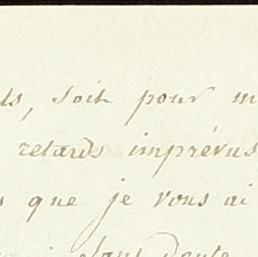 soit pour
retards imprévus
que je vous ai
sans doute